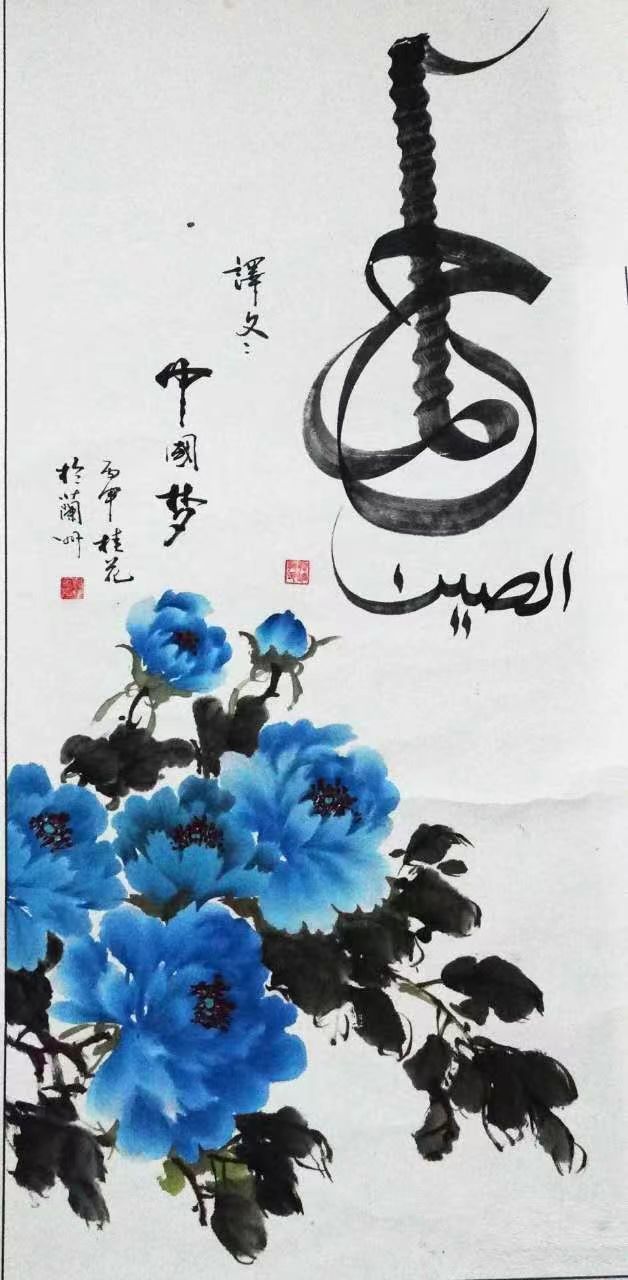 الصين
譯文：
中國梦
丙申桂花
於蘭州